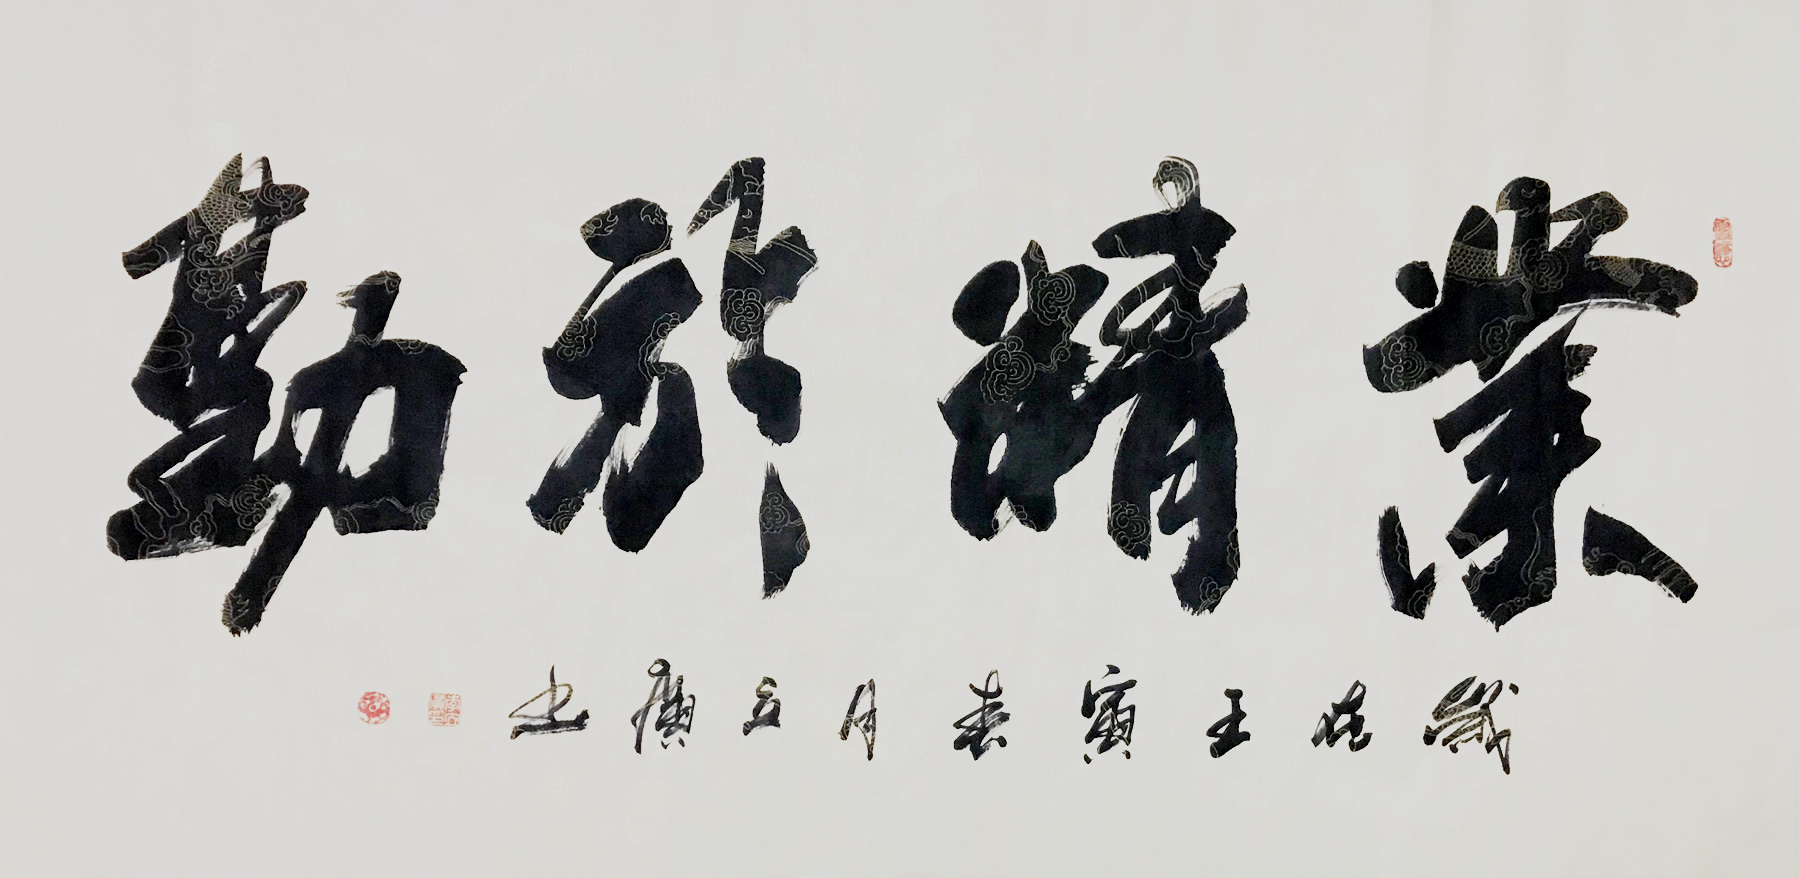 業精於勤
歲在壬寅春月立廣書